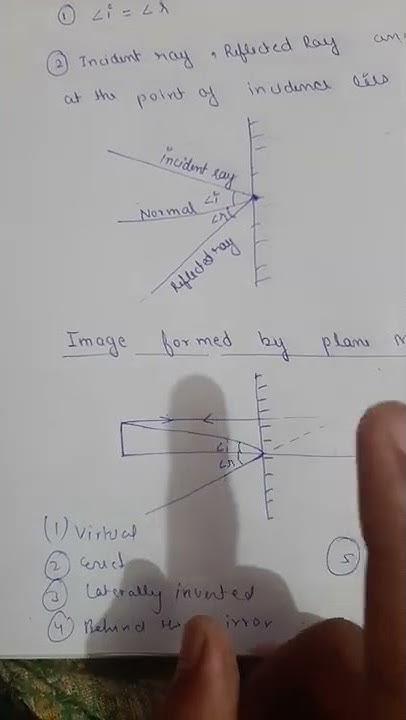 ① ∠i = ∠r
② Incident ray, Reflected Ray an
at the point of incidence lies
Incident ray
Normal ∠i
∠r
Reflected ray
Image formed by plane
∠i
∠r
(1) Virtual
② erect
③ Laterally inverted
④ Behind irror
⑤